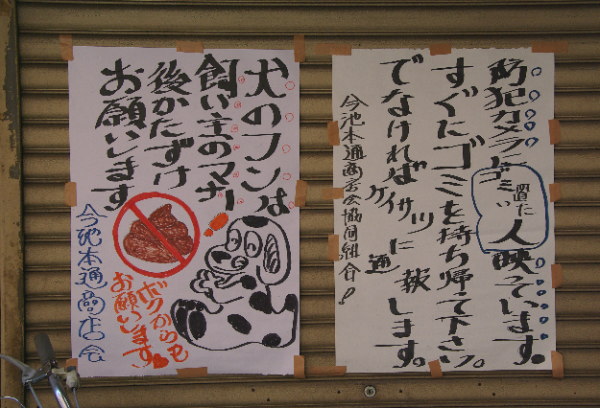 防犯カメラにゴミ置いた人映っています。
すぐにゴミを持ち帰て下さい。
でなければケイサツに通報します。
今池本通商店会協同組合!
犬のフンは
飼い主のマナー
後かたずけ
お願いします
ボクからも
お願いします。
今池本通商店会